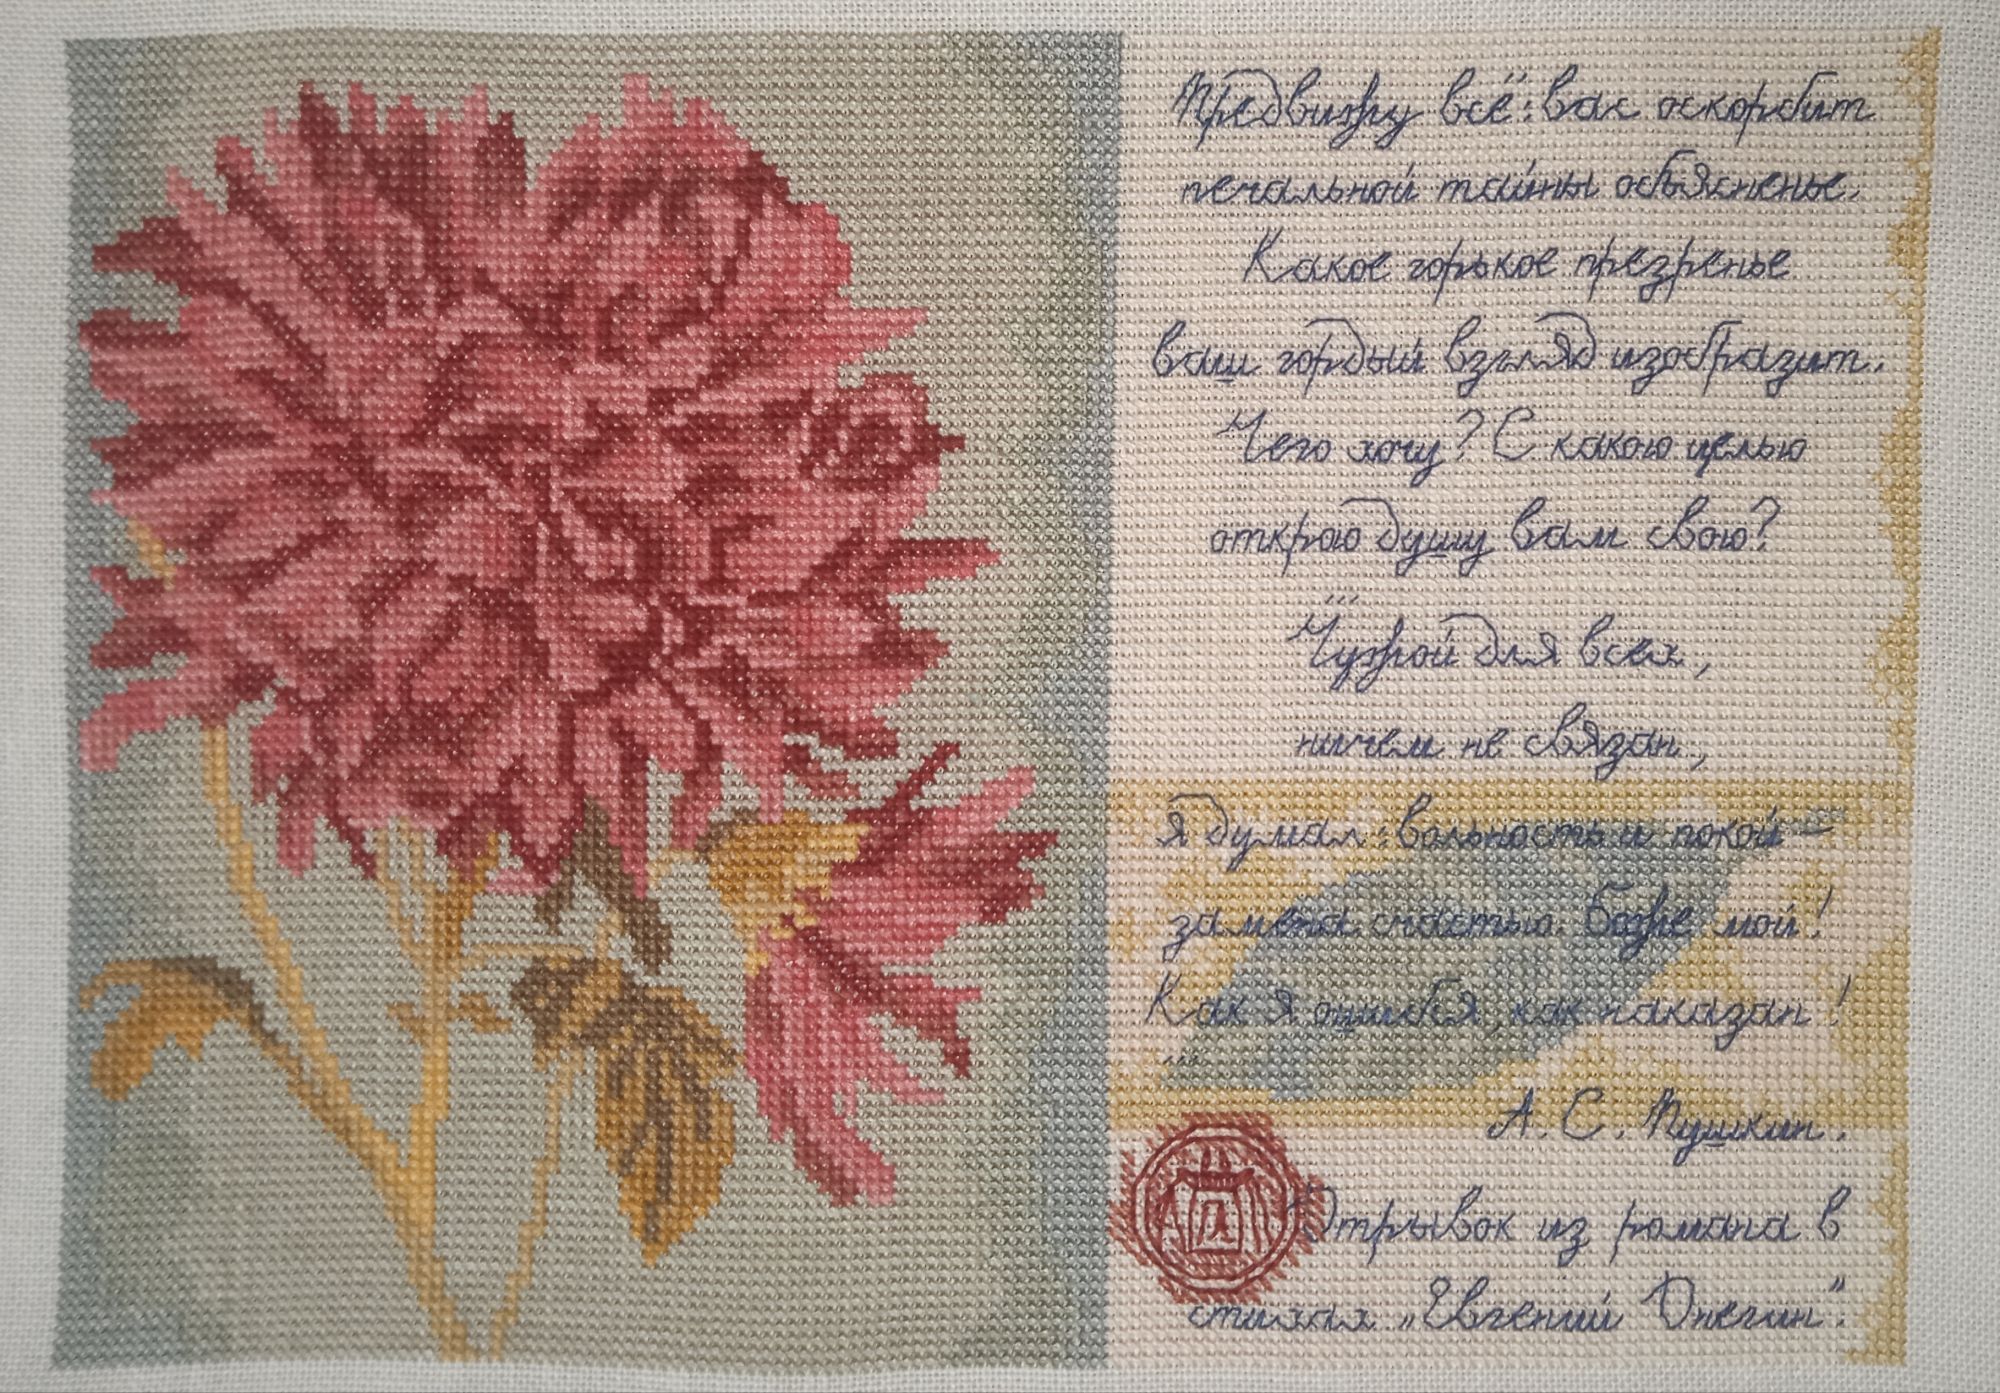 Предвижу всё: вас оскорбит
печальной тайны объясненье.
Какое горькое презренье
ваш гордый взгляд изобразит.
Чего хочу? С какою целью
открою душу вам свою?
...
Чужой для всех,
ничем не связан,
я думал: вольность и покой —
замена счастью. Боже мой!
Как я ошибся, как наказан!
...
А. С. Пушкин.
Отрывок из романа в
стихах „Евгений Онегин".